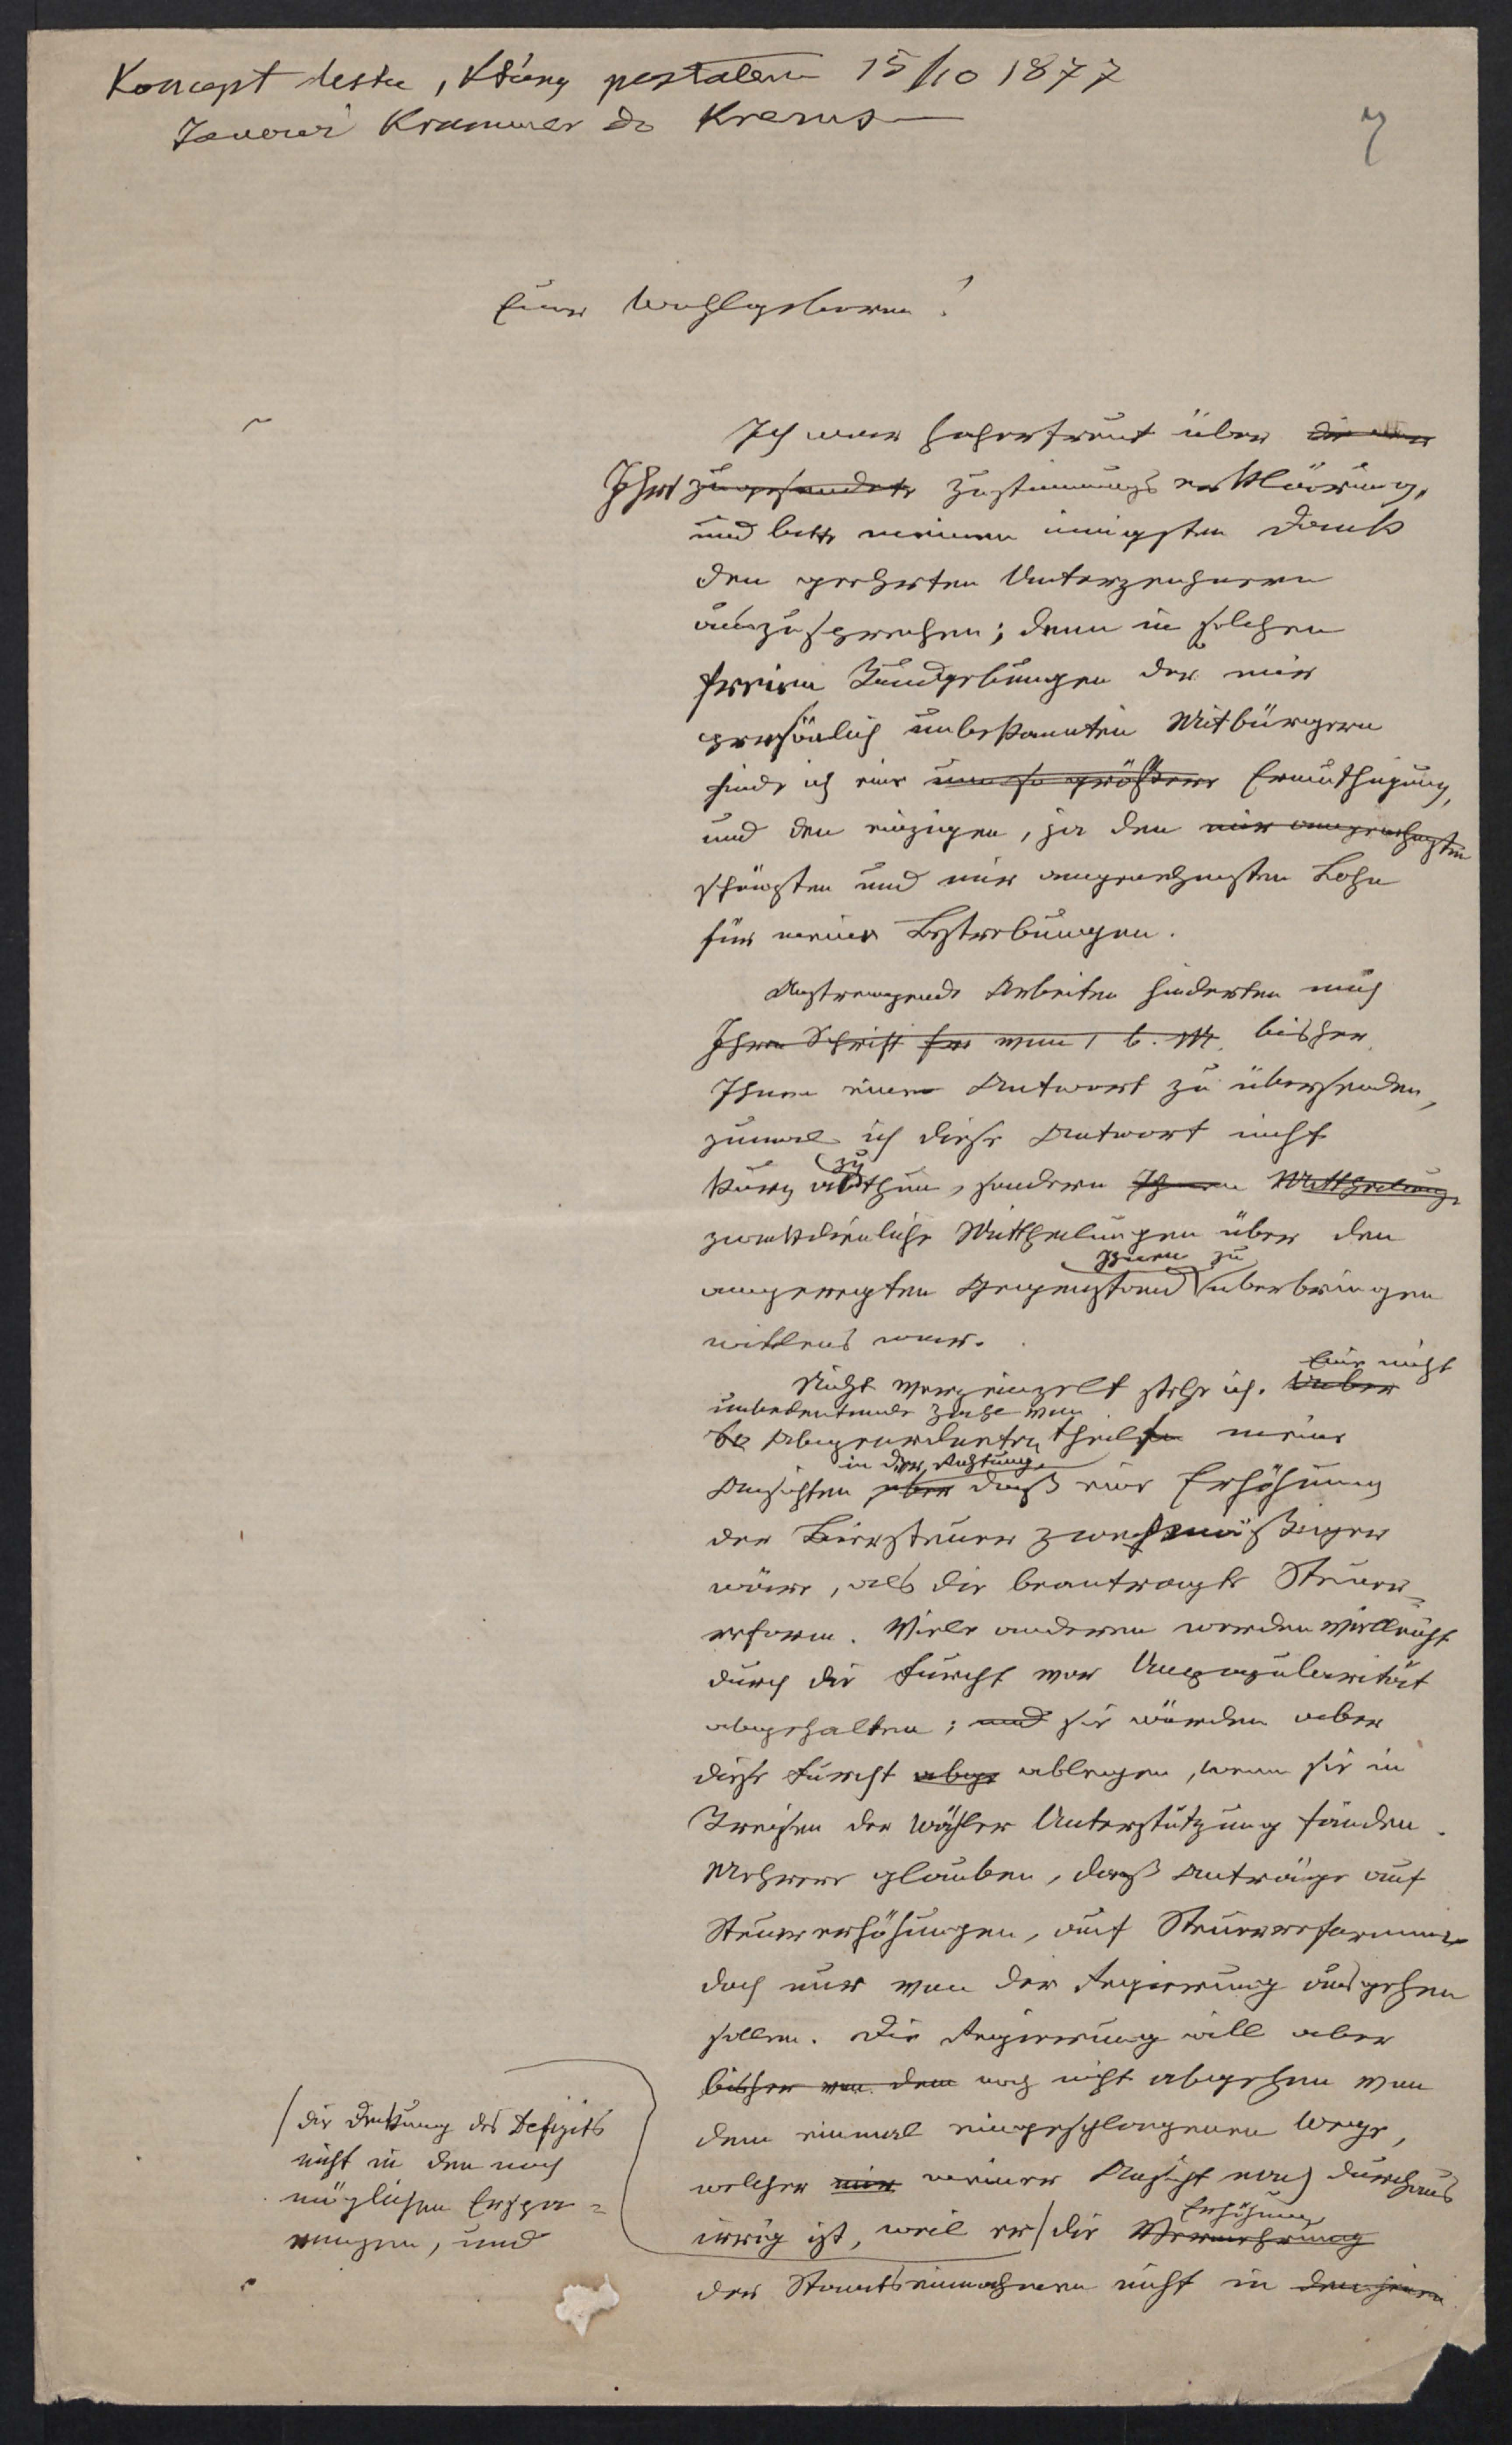 Koncept listu, který postalem 15/10 1877
Xaverovi Krammer do Krems
7
Euer Wohlgeboren!
Ich war hocherfreut über die
Ihre zugesendete Zustimmungserklärung,
und bitte meinen innigsten Dank
den geehrten Unterzeichnern
auszusprechen; denn in solchen
freien Kundgebungen der mir
persönlich unbekannten Mitbürgern
finde ich eine um so größere Ermuthigung,
und den einzigen, ja den mir angenehmsten
schönsten und mir angenehmsten Lohn
für meine Bestrebungen.
Anstrengende Arbeiten hinderten mich
Ihre Schrift vom 1 l. M. bisher
Ihnen eine Antwort zu übersenden,
zumal ich diese Antwort nicht
kurz abthun, sondern Ihnen Mittheilung
zu
zweckdienliche Mittheilungen über den
Ihnen zu
angeregten Gegenstand überbringen
willens war.
Eine nicht
Nicht vereinzelt stehe ich. Ueber
unbedeutende Zahl von
60 Abgeordneten theilen meine
in der Richtung
Ansichten über daß eine Erhöhung
der Biersteuer zweckmäßiger
wäre, als die beantragte Steuer-
reform. Viele anderen werden vielleicht
durch die Furcht vor Unpopularität
abgehalten; und sie würden aber
diese Furcht abge ablegen, wenn sie in
Kreisen der Wähler Unterstützung fänden.
Mehrere glauben, daß Anträge auf
Steuererhöhungen, auf Steuerreformen
doch nur von der Regierung ausgehen
sollen. Die Regierung will aber
bisher von dem noch nicht abgehen von
dem einmal eingeschlagenen Wege,
welcher mir meiner Ansicht nach durchaus
Erhöhung
irrig ist, weil er / die Vermehrung
der Staatseinnahmen nicht in den jenen
/ die Deckung des Defizits
nicht in den noch
möglichen Erspa-
rungen, und